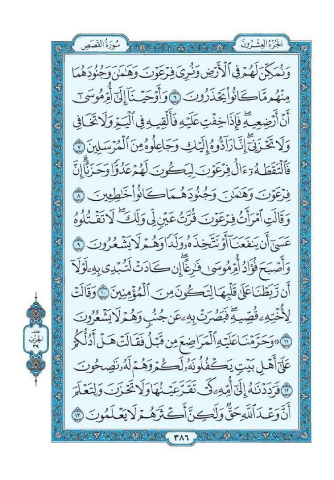 الجزء العشرون
سورة القصص
وَنُمَكِّنَ لَهُمْ فِي ٱلْأَرْضِ وَنُرِيَ فِرْعَوْنَ وَهَٰمَٰنَ وَجُنُودَهُمَا
مِنْهُم مَّا كَانُوا۟ يَحْذَرُونَ ۝٦ وَأَوْحَيْنَآ إِلَىٰٓ أُمِّ مُوسَىٰٓ
أَنْ أَرْضِعِيهِ ۖ فَإِذَا خِفْتِ عَلَيْهِ فَأَلْقِيهِ فِي ٱلْيَمِّ وَلَا تَخَافِي
وَلَا تَحْزَنِىٓ ۖ إِنَّا رَآدُّوهُ إِلَيْكِ وَجَاعِلُوهُ مِنَ ٱلْمُرْسَلِينَ ۝٧
فَٱلْتَقَطَهُۥٓ ءَالُ فِرْعَوْنَ لِيَكُونَ لَهُمْ عَدُوًّا وَحَزَنًا ۗ إِنَّ
فِرْعَوْنَ وَهَٰمَٰنَ وَجُنُودَهُمَا كَانُوا۟ خَٰطِـِٔينَ ۝٨
وَقَالَتِ ٱمْرَأَتُ فِرْعَوْنَ قُرَّتُ عَيْنٍ لِّي وَلَكَ ۖ لَا تَقْتُلُوهُ
عَسَىٰٓ أَن يَنفَعَنَآ أَوْ نَتَّخِذَهُۥ وَلَدًا وَهُمْ لَا يَشْعُرُونَ ۝٩
وَأَصْبَحَ فُؤَادُ أُمِّ مُوسَىٰ فَٰرِغًا ۖ إِن كَادَتْ لَتُبْدِي بِهِۦ لَوْلَآ
أَن رَّبَطْنَا عَلَىٰ قَلْبِهَا لِتَكُونَ مِنَ ٱلْمُؤْمِنِينَ ۝١٠ وَقَالَتْ
لِأُخْتِهِۦ قُصِّيهِ ۖ فَبَصُرَتْ بِهِۦ عَن جُنُبٍ وَهُمْ لَا يَشْعُرُونَ
۝١١ ۞ وَحَرَّمْنَا عَلَيْهِ ٱلْمَرَاضِعَ مِن قَبْلُ فَقَالَتْ هَلْ أَدُلُّكُمْ
عَلَىٰٓ أَهْلِ بَيْتٍ يَكْفُلُونَهُۥ لَكُمْ وَهُمْ لَهُۥ نَٰصِحُونَ
۝١٢ فَرَدَدْنَٰهُ إِلَىٰٓ أُمِّهِۦ كَيْ تَقَرَّ عَيْنُهَا وَلَا تَحْزَنَ وَلِتَعْلَمَ
أَنَّ وَعْدَ ٱللَّهِ حَقٌّ وَلَٰكِنَّ أَكْثَرَهُمْ لَا يَعْلَمُونَ ۝١٣
٣٨٦
الحزب
٣٩